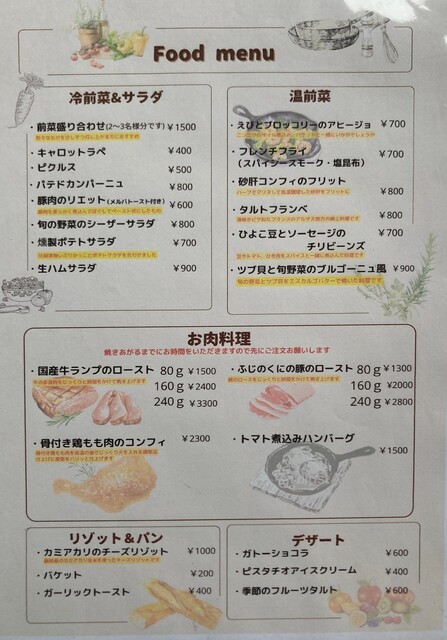 Food menu
冷前菜&サラダ
・前菜盛り合わせ(2〜3名様分です) ￥1500
・キャロットラペ ￥400
・ピクルス ￥500
・パテドカンパーニュ ￥800
・豚肉のリエット(メルバトースト付き) ￥600
・旬の野菜のシーザーサラダ ￥800
・燻製ポテトサラダ ￥700
・生ハムサラダ ￥900
温前菜
・えびとブロッコリーのアヒージョ ￥700
・フレンチフライ
(スパイシースモーク・塩昆布) ￥700
・砂肝コンフィのフリット ￥800
・タルトフランベ ￥800
・ひよこ豆とソーセージの
チリビーンズ ￥700
・ツブ貝と旬野菜のブルゴーニュ風 ￥900
旬の野菜とツブ貝をエスカルゴバターで焼いた料理です
お肉料理
焼きあがるまでにお時間をいただきますので先にご注文お願いします
・国産牛ランプのロースト 80g ￥1500
160g ￥2400
240g ￥3300
・骨付き鶏もも肉のコンフィ ￥2300
・ふじのくにの豚のロースト 80g ￥1300
160g ￥2000
240g ￥2800
・トマト煮込みハンバーグ
￥1500
リゾット&パン
・カミアカリのチーズリゾット ￥1000
・バケット ￥200
・ガーリックトースト ￥400
デザート
・ガトーショコラ ￥600
・ピスタチオアイスクリーム ￥400
・季節のフルーツタルト ￥600